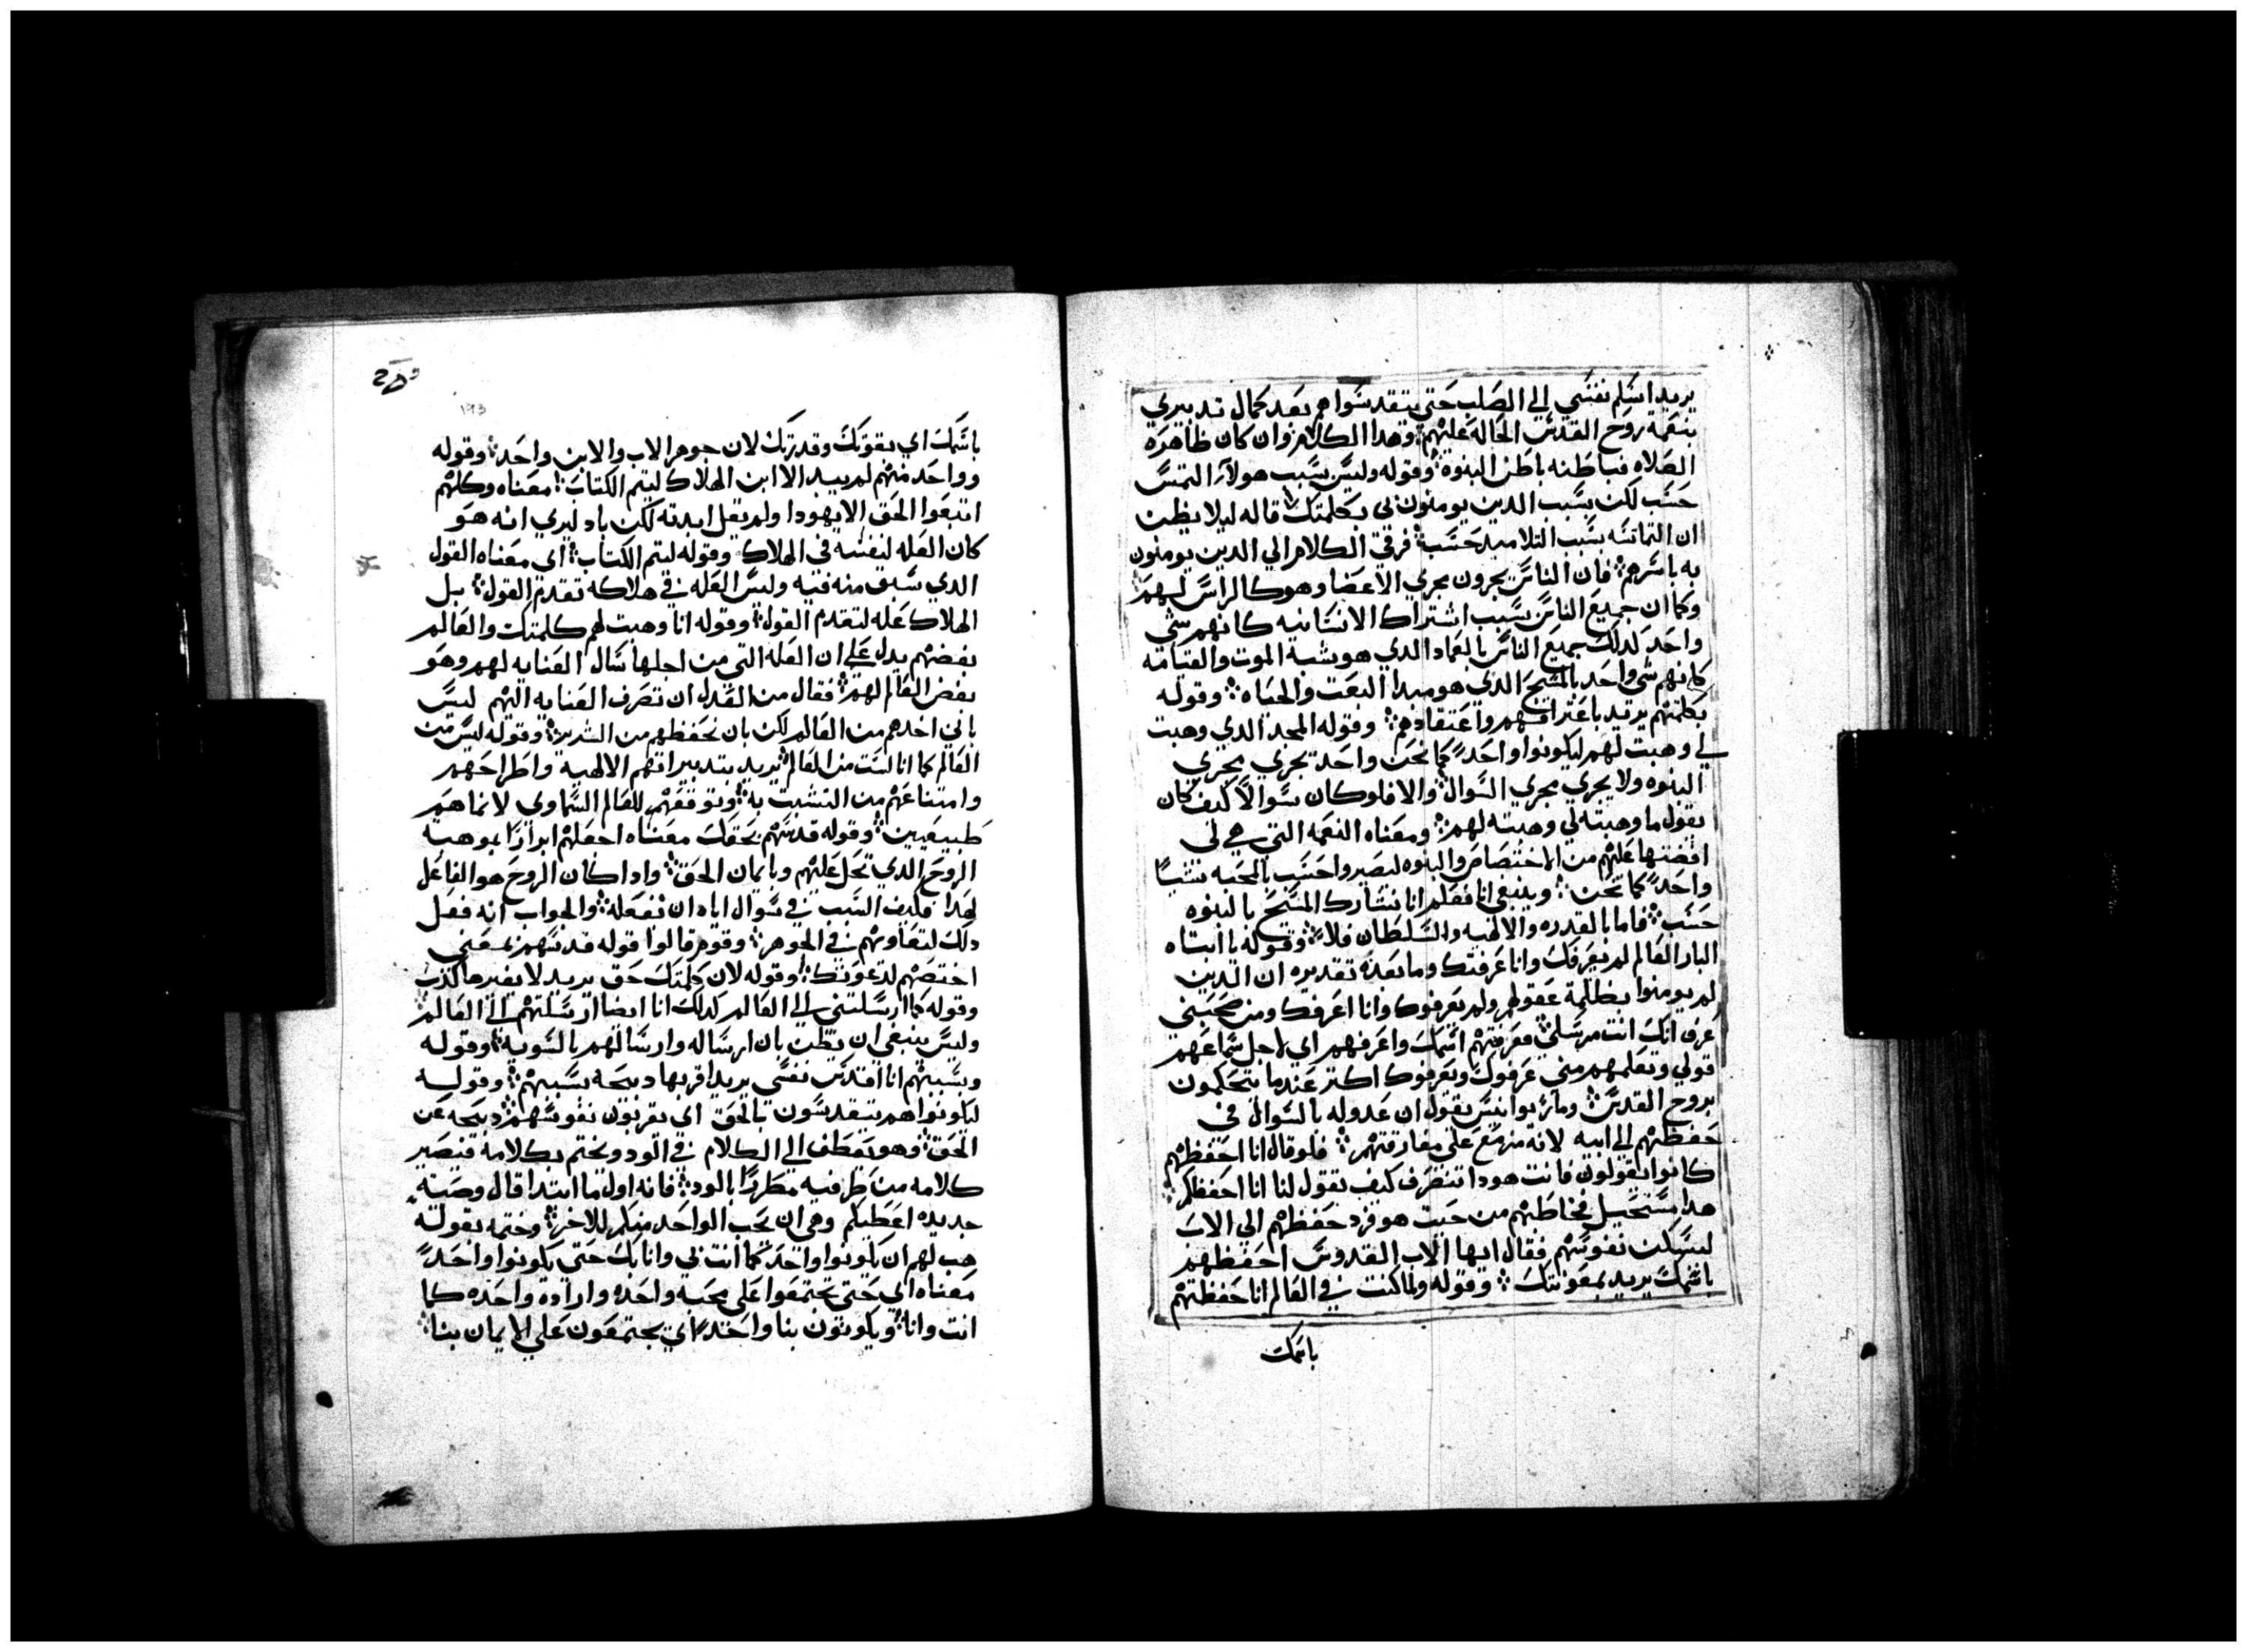 يريد اسلم نفسي الي الصلب حتي يتقدسوا هم بعد كمال تدبيري
بنعمة روح القدس الحاله عليهم وهدا الكلام وان كان ظاهره
الصلاه فباطنه باطن البنوه وقوله وليس بسبب هولاء التمس
حسب لكن بسبب الدين يومنون بي بكلمتك قاله ليلا يظن
ان التماسه بسبب التلاميد حسب فرقي الكلام الي الدين يومنون
به باسرهم فان الناس يجرون مجري الاعضا وهو كالراس لهم
وكما ان جميع الناس بسبب اشتراك الانسانيه كانهم شي
واحد كدلك جميع الناس بالعماد الدي هو شبه الموت والقيامه
كانهم شي واحد بالمسيح الدي هو مبدا البعت والحياه وقوله
بكلمتهم يريد باعترافهم واعتقادهم وقوله المجد الدي وهبت
لي وهبت لهم ليكونوا واحدً كما نحن واحد يجري مجري
البنوه ولا يجري مجري السوال والا فلو كان سوالاً كيف كان
يقول ما وهبته لي وهبته لهم ومعناه النعمه التي هي لي
افضتها عليهم من الاختصاص والبنوه لنصير واحسب بالمحبه
واحدً كما نحن وينبغي ان نعلم انا نشارك المسيح بالبنوه
حسب فاما بالقدره والالهيه والسلطان فلا وقوله يا ابتاه
البار العالم لم يعرفك وانا عرفتك وما بعده تقديره ان الدين
لم يومنوا بظلمة عقولهم ولم يعرفوك وانا اعرفك ومن صحبني
عرف انك انت مرسلي فعرفتهم اسمك واعرفهم اي لاجل سماعهم
قولي وتعلمهم مني عرفوك ويعرفوك اكتر عندما يتحكمون
بروح القدس ومار يوانيس يقول ان عدوله بالسوال في
حفظهم الي ابيه لانه مزمع علي مفارقتهم فلو قال انا احفظهم
كانوا يقولون فانت هودا تنصرف كيف تقول لنا انا احفظكم
هدا مستحيل فخاطبهم من حيت هو فرد حفظهم الي الاب
ليسكن نفوسهم فقال ايها الاب القدوس احفظهم
باسمك يريد بمعونتك وقوله ولما كنت في العالم انا حفظتهم
باسمك
باسمك اي بقوتك وقدرتك لان جوهر الاب والابن واحد وقوله
وواحد منهم لم يبيد الا ابن الهلاك ليتم الكتاب معناه وكلهم
اتبعوا الحق الا يهودا ولم يقل ابدته لكن باد ليري انه هو
كان العله لنفسه في الهلاك وقوله ليتم الكتاب اي معناه القول
الدي سبق منه فيه وليس العله في هلاكه تقدم القول بل
الهلاك عله لتقدم القول وقوله انا وهبت لهم كلمتك والعالم
بغضهم يدل علي ان العله التي من اجلها سال العنايه لهم وهو
بغض العالم لهم فقال من العدل ان تصرف العنايه اليهم ليس
باني اخدهم من العالم لكن بان تحفظهم من الشرير وقوله ليس من
العالم كما انا لست من العالم يريد بتدبيراتهم الالهيه واطراحهم
وامتناعهم من التشبت به وتوقعهم للعالم السماوي لا نما هم
طبيعيين وقوله قدسهم بحقك معناه اجعلهم ابرارًا بموهبة
الروح الدي تحل عليهم وبايمان الحق وادا كان الروح هو الفاعل
لهدا فكيف السبب في سوال اباه ان نفعله والجواب انه فعل
دلك لتعاونهم في الجوهر وقوم قالوا قوله قدسهم بمعني
اختصهم لدعوتك وقوله لان كلمتك حق يريد لا يغيرها كدب
وقوله كما ارسلتني الي العالم كدلك انا ايضا ارسلتهم الي العالم
وليس ينبغي ان يظن بان ارساله وارسالهم بالسويه وقوله
وبسببهم انا اقدس نفسي يريد اقربها دبيحه بسببهم وقوله
ليكونوا هم يتقدسون بالحق اي يقربون نفوسهم دبيحه عن
الحق وهو يعطف الي الكلام في الود ويختم بكلامه فيصير
كلامه من طرفيه مطرزًا بالود فانه اول ما ابتدا قال وصيه
جديده اعطيكم وهي ان يحب الواحد منكم للاخر وختمه بقوله
هب لهم ان يكونوا واحدً كما انت بي وانا بك حتي يكونوا واحدً
معناه اي حتي يجتمعوا علي محبه واحده واراده واحده كما
انت وانا ويكونون بنا واحدً اي يجتمعون علي الايمان بنا